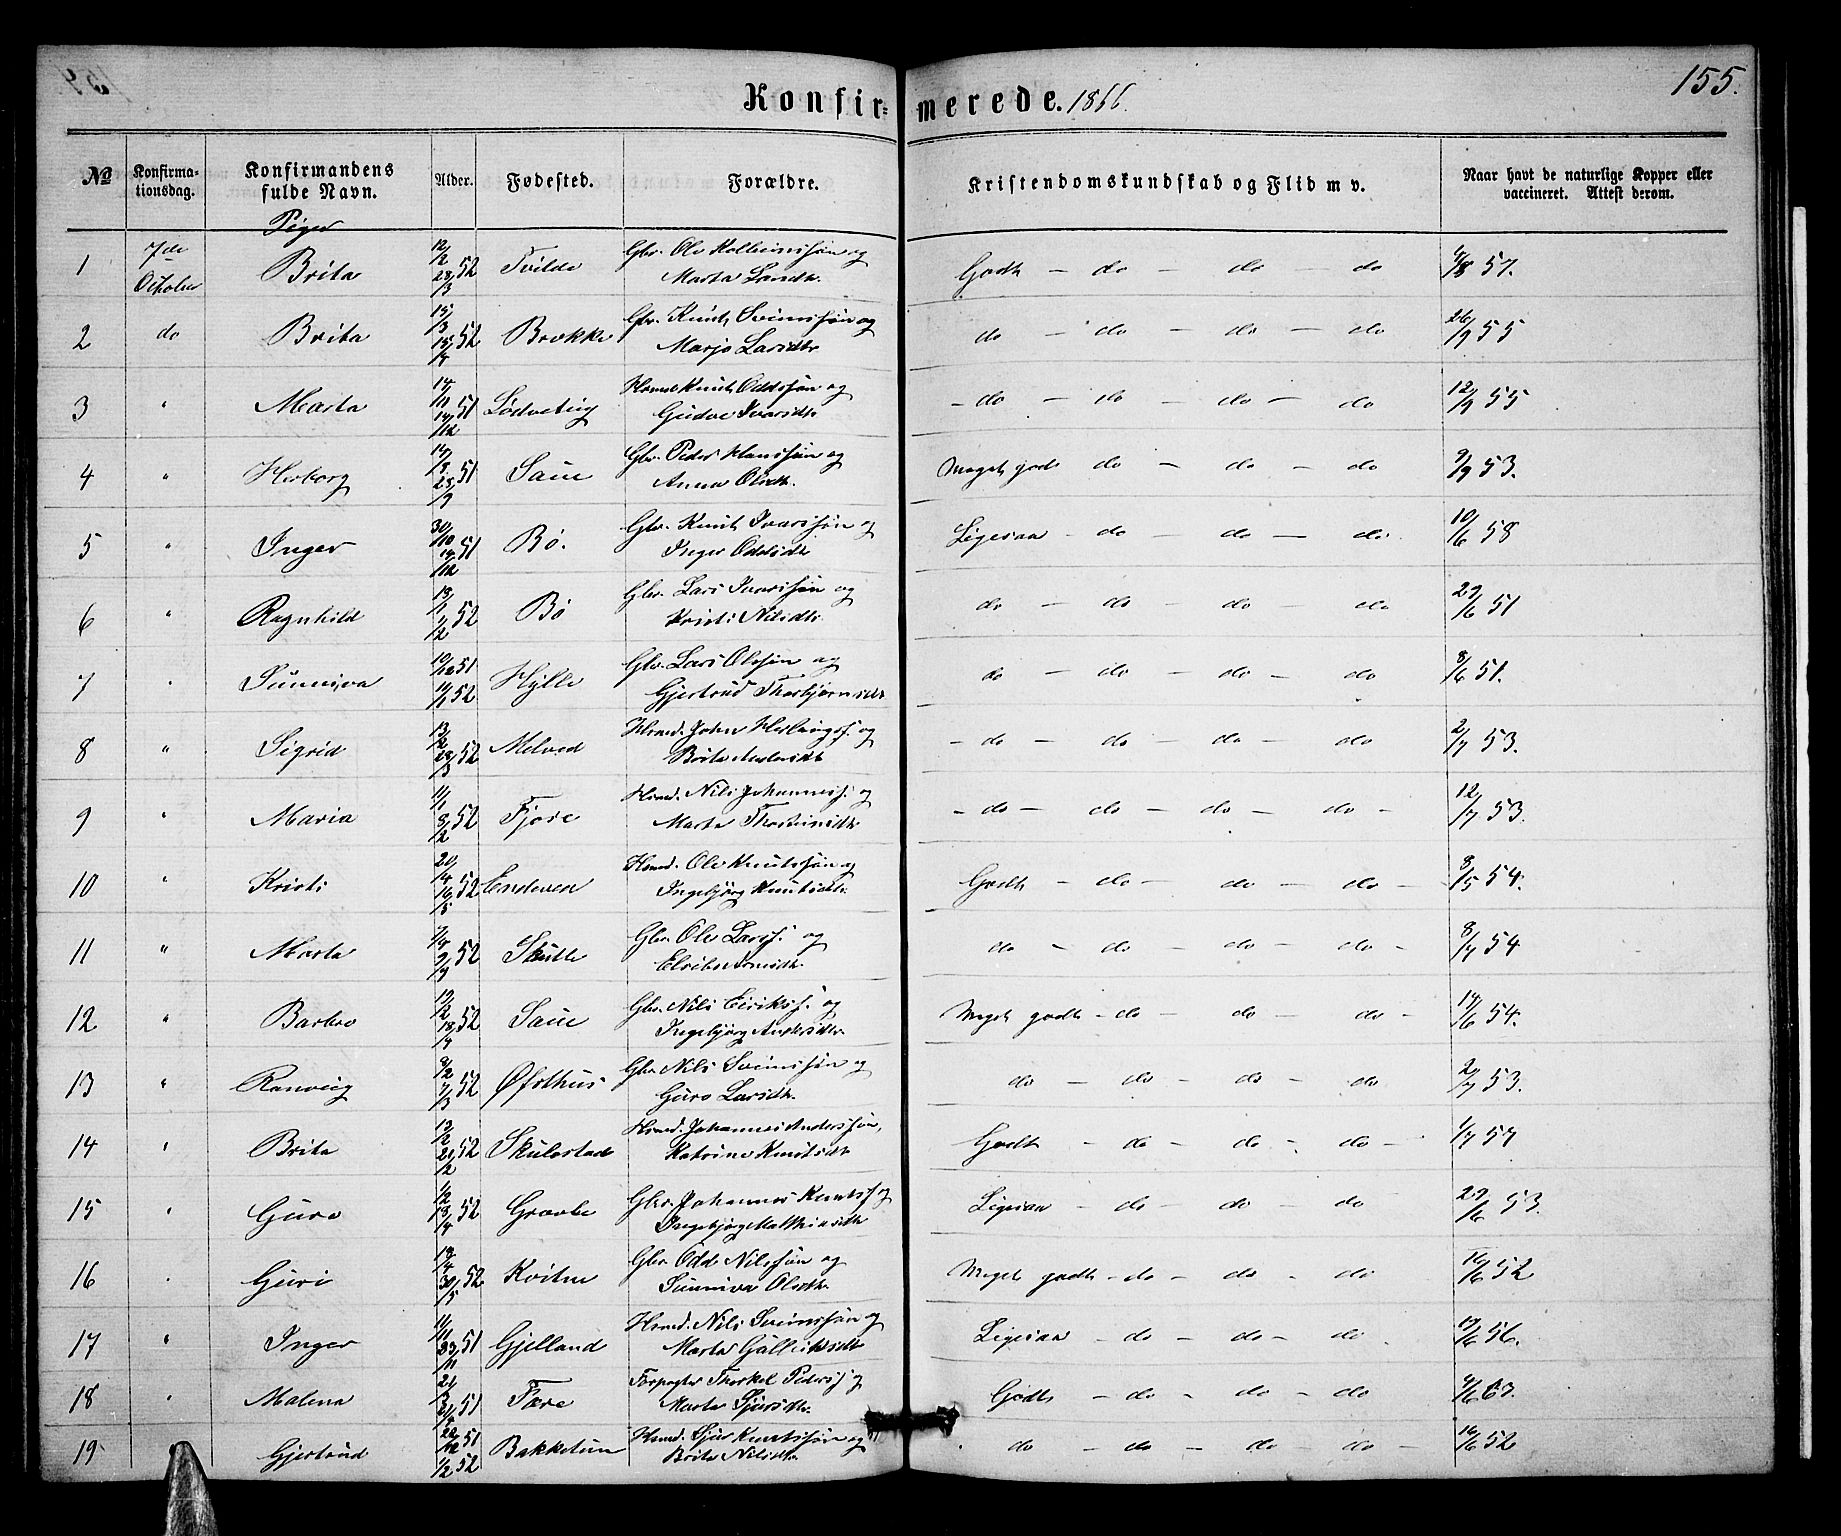 Konfirmerede. 1866.
155.
No
Konfirmationsdag.
Konfirmandens fulde Navn.
Alder.
Fødested.
Forældre.
Kristendomskundskab og Flid m v.
Naar havt de naturlige Kopper eller vaccineret. Attest derom.
Piger
1 7de October Brita 12/2 28/3 52 Tvilde Gbr. Ole og Marta Larsdtr. Godt - do - do - do 57.
2 do Brita 15/3 52 Brekke Gbr. Knut Sveinssøn og Larsdtr. do - do - do - do 26/9 55
3 " Marta 14/11 14/12 51 Lødveting Hsmd. Knut Oddssøn og Gudve Ivarsdtr. - do - do - do - do 12/9 55
4 " Herborg 28/9 51 Saue Gbr. Peder Hanssøn og Anna Olsdtr. Meget godt do - do - do 9/9 53.
5 " Inger 30/10 14/12 51 Bø. Gbr. Knut Ivarssøn og Inger Oddsdtr. Ligesaa - do - do - do 10/6 58
6 " Ragnhild 13/1 1/2 52 Bø Gbr. Lars Ivarssøn og Kristi Nilsdtr. do - do - do - do 29/6 51
7 " Sunniva 10/12 51 11/1 52 Hylle Gbr. Lars Olssøn og Gjertrud Thorbjørnsdtr do - do - do - do 8/6 51.
8 " Sigrid 13/2 28/3 52 Melved Hsmd. John og Brita Andersdtr - do - do - do - do 2/7 53.
9 " Maria 11/1 8/2 52 Fjøre Hsmd. Nils Johanness. og Marta Thorsteinsdtr. - do - do - do - do - 12/7 53.
10 " Kristi 20/4 16/5 52 Endeven Hsmd. Ole Knutssøn og Ingebjørg Knutsdtr. Godt - do - do - do - 8/5 54.
11 " Marta 52 Skutle Gbr. Ole Larss. og Arnesdtr. do - do - do - do - 8/7 54
12 " Barbro 19/2 18/4 52 Saue Gbr. Nils Eirikss. og Ingebjørg Andersdtr. Meget godt - do - do - do - 14/6 54.
13 " Ranveig 8/2 7/3 52 Øfsthus Gbr. Nils Sveinssøn og Guro Larsdtr. do - do - do - do 2/7 53.
14 " Brita 13/2 21/2 52 Skulestad Hsmd. Johannes Anderssøn, Katrine Knutsdtr Godt - do - do - do - 57
15 " Guro 1/2 13/4 52 Graue Gbr. Johannes Knutss. og Ingebjørg Matthiasdtr Ligesaa - do - do - do 29/6 53.
16 " Guri 19/4 30/5 52 Kvitne Gbr. Odd Nilssøn og Sunniva Olsdtr. Meget godt - do - do - do 16/6 52
17 " Inger 11/11 23/11 51 Gjelland Hsmd. Nils Sveinssøn og Marta Ligesaa - do - do - do. 19/6 56.
18 " Malena 51 Forpagter Thorkel Pederss. og Marta Sjursdtr. Godt - do - do - do 63.
19 " Gjertrud 22/12 51 1/2 52 Bakketun Hsmd. Sjur Knutssøn og Brita Nilsdtr. do - do - do - do - 16/6 52